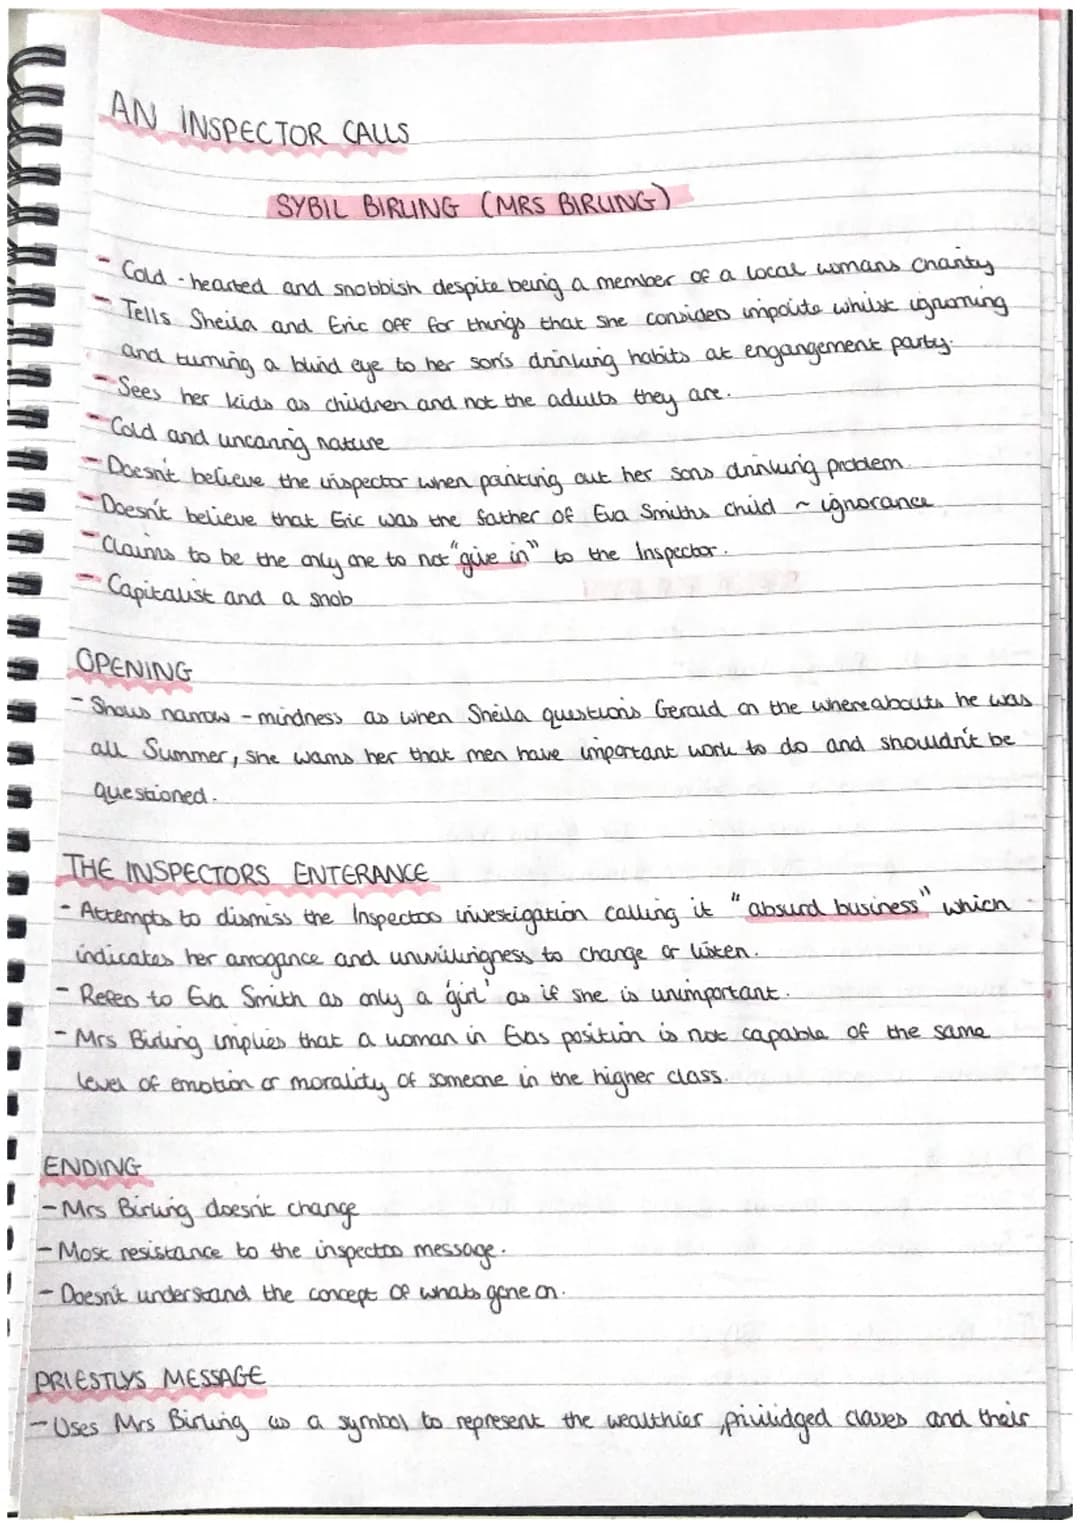 AN INSPECTOR CALLS
SYBIL BIRLING (MRS BIRLING)
- Cold-hearted and snobbish despite being a member of a local womans charity
- Tells Sheila and Eric off for things that she considers impolite whilst ignorning
and turning a blind eye to her son's drinking habits at engangement party.
- Sees her kids as children and not the adults they are.
- Cold and uncaring nature
- Doesn't believe the inspector when painting out her sons drinking problem.
- Doesn't believe that Eric was the father of Eva Smiths child ~ ignorance
- Claims to be the only one to not "give in" to the Inspector.
- Capitalist and a snob
OPENING
- Shows narrow-mindness as when Sheila questions Gerald on the whereabouts he was
all Summer, she warns her that men have important work to do and shouldn't be
questioned.
THE INSPECTORS ENTERANCE
- Attempts to dismiss the Inspectos investigation calling it "absurd business" which
indicates her arrogance and unwillingness to change or listen.
- Refers to Eva Smith as only a 'girl' as if she is unimportant.
- Mrs Birling implies that a woman in Evas position is not capable of the same
level of emotion or morality of someone in the higher class.
ENDING
- Mrs Birling doesn't change
- Most resistance to the inspectos message.
- Doesn't understand the concept of whats gone on.
PRIESTLYS MESSAGE
- Uses Mrs Birling as a symbol to represent the wealthier, privilidged classes and their